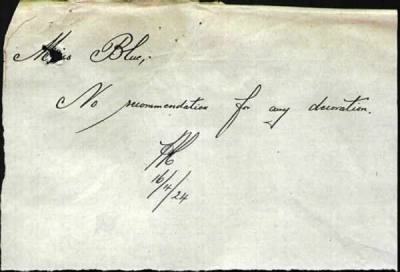 Miss Blue,
No recommendation for any decoration.
16/4/24